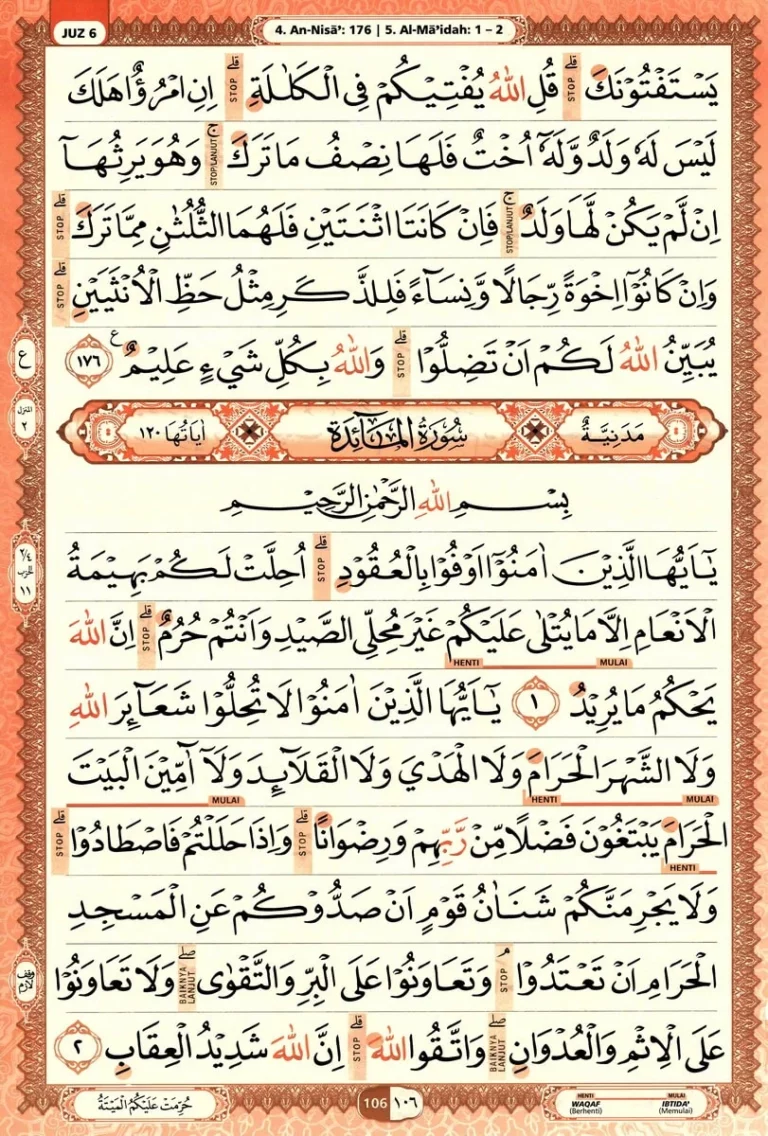 JUZ 6
4. An-Nisā': 176 | 5. Al-Mā'idah: 1 – 2
يَسْتَفْتُوْنَكَۗ قُلِ اللّٰهُ يُفْتِيْكُمْ فِى الْكَلٰلَةِۗ اِنِ امْرُؤٌا هَلَكَ
لَيْسَ لَهٗ وَلَدٌ وَّلَهٗٓ اُخْتٌ فَلَهَا نِصْفُ مَا تَرَكَۚ وَهُوَ يَرِثُهَآ
اِنْ لَّمْ يَكُنْ لَّهَا وَلَدٌۚ فَاِنْ كَانَتَا اثْنَتَيْنِ فَلَهُمَا الثُّلُثٰنِ مِمَّا تَرَكَۗ
وَاِنْ كَانُوْٓا اِخْوَةً رِّجَالًا وَّنِسَاۤءً فَلِلذَّكَرِ مِثْلُ حَظِّ الْاُنْثَيَيْنِۗ
يُبَيِّنُ اللّٰهُ لَكُمْ اَنْ تَضِلُّوْاۗ وَاللّٰهُ بِكُلِّ شَيْءٍ عَلِيْمٌ ࣖ ١٧٦
مَدَنِيَّةٌ سُوْرَةُ الْمَاۤئِدَةِ اٰيَاتُهَا ١٢٠
بِسْمِ اللّٰهِ الرَّحْمٰنِ الرَّحِيْمِ
يٰٓاَيُّهَا الَّذِيْنَ اٰمَنُوْٓا اَوْفُوْا بِالْعُقُوْدِۗ اُحِلَّتْ لَكُمْ بَهِيْمَةُ
الْاَنْعَامِ اِلَّا مَا يُتْلٰى عَلَيْكُمْ غَيْرَ مُحِلِّى الصَّيْدِ وَاَنْتُمْ حُرُمٌۗ اِنَّ اللّٰهَ
HENTI MULAI
يَحْكُمُ مَا يُرِيْدُ ١ يٰٓاَيُّهَا الَّذِيْنَ اٰمَنُوْا لَا تُحِلُّوْا شَعَاۤئِرَ اللّٰهِ
وَلَا الشَّهْرَ الْحَرَامَ وَلَا الْهَدْيَ وَلَا الْقَلَاۤئِدَ وَلَآ اٰۤمِّيْنَ الْبَيْتَ
MULAI HENTI MULAI
الْحَرَامَ يَبْتَغُوْنَ فَضْلًا مِّنْ رَّبِّهِمْ وَرِضْوَانًاۗ وَاِذَا حَلَلْتُمْ فَاصْطَادُوْاۗ
HENTI
وَلَا يَجْرِمَنَّكُمْ شَنَاٰنُ قَوْمٍ اَنْ صَدُّوْكُمْ عَنِ الْمَسْجِدِ
الْحَرَامِ اَنْ تَعْتَدُوْاۘ وَتَعَاوَنُوْا عَلَى الْبِرِّ وَالتَّقْوٰىۖ وَلَا تَعَاوَنُوْا
عَلَى الْاِثْمِ وَالْعُدْوَانِۖ وَاتَّقُوا اللّٰهَۗ اِنَّ اللّٰهَ شَدِيْدُ الْعِقَابِ ٢
حُرِّمَتْ عَلَيْكُمُ الْمَيْتَةُ
106 ١٠٦
HENTI MULAI
WAQAF IBTIDA'
(Berhenti) (Memulai)
STOP
STOP
STOP/LANJUT
STOP/LANJUT
STOP
STOP
STOP
STOP
STOP
STOP
STOP
STOP
BAIKNYA LANJUT
BAIKNYA LANJUT
STOP
ع
المنزل
٢
٢/٤
الحزب
١١
وقف لازم